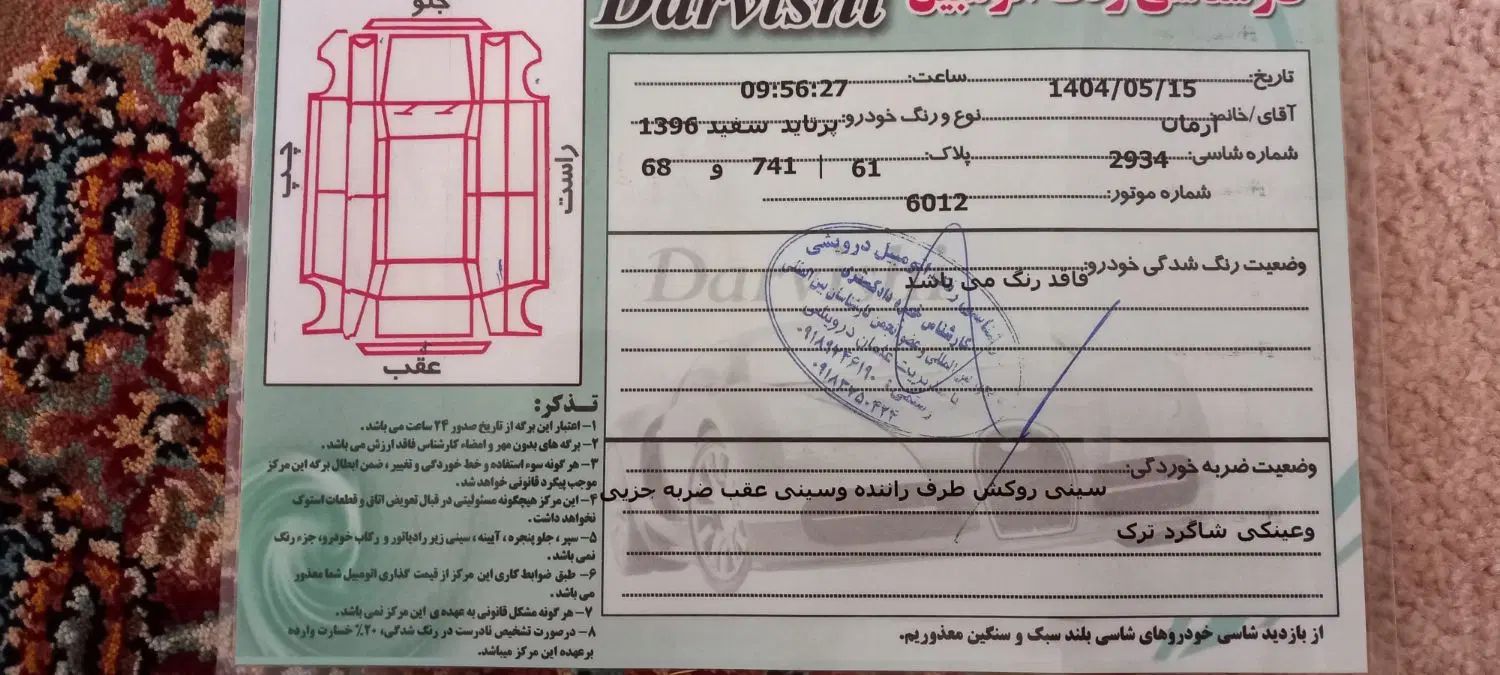 Darvishi
جلو
چپ
راست
عقب
تاریخ: 1404/05/15 ساعت: 09:56:27
آقای/خانم: آرمان نوع و رنگ خودرو: پرتاید سفید 1396
شماره شاسی: 2934 پلاک: 61 | 741 و 68
شماره موتور: 6012
وضعیت رنگ شدگی خودرو: فاقد رنگ می باشد
اتومبیل درویشی
کارشناس
دادگستری
عثمان درویشی
وضعیت ضربه خوردگی:
سینی روکش طرف راننده وسینی عقب ضربه جزیی
وعینکی شاگرد ترک
از بازدید شاسی خودروهای شاسی بلند سبک و سنگین معذوریم.
تـذکر:
۱- اعتبار این برگه از تاریخ صدور ۲۴ ساعت می باشد.
۲- برگه های بدون مهر و امضاء کارشناس فاقد ارزش می باشد.
۳- هر گونه سوء استفاده و خط خوردگی و تغییر، ضمن ابطال برگه این مرکز
موجب پیگرد قانونی خواهد شد.
۴- این مرکز هیچگونه مسئولیتی در قبال تعویض اتاق و قطعات استوک
نخواهد داشت.
۵- سپر، جلو پنجره، آیینه، سینی زیر رادیاتور و رکاب خودرو، جزء رنگ
نمی باشد.
۶- طبق ضوابط کاری این مرکز از قیمت گذاری اتومبیل شما معذور
می باشد.
۷- هر گونه مشکل قانونی به عهده ی این مرکز نمی باشد.
۸- درصورت تشخیص نادرست در رنگ شدگی، ۲۰٪ خسارت وارده
برعهده این مرکز میباشد.